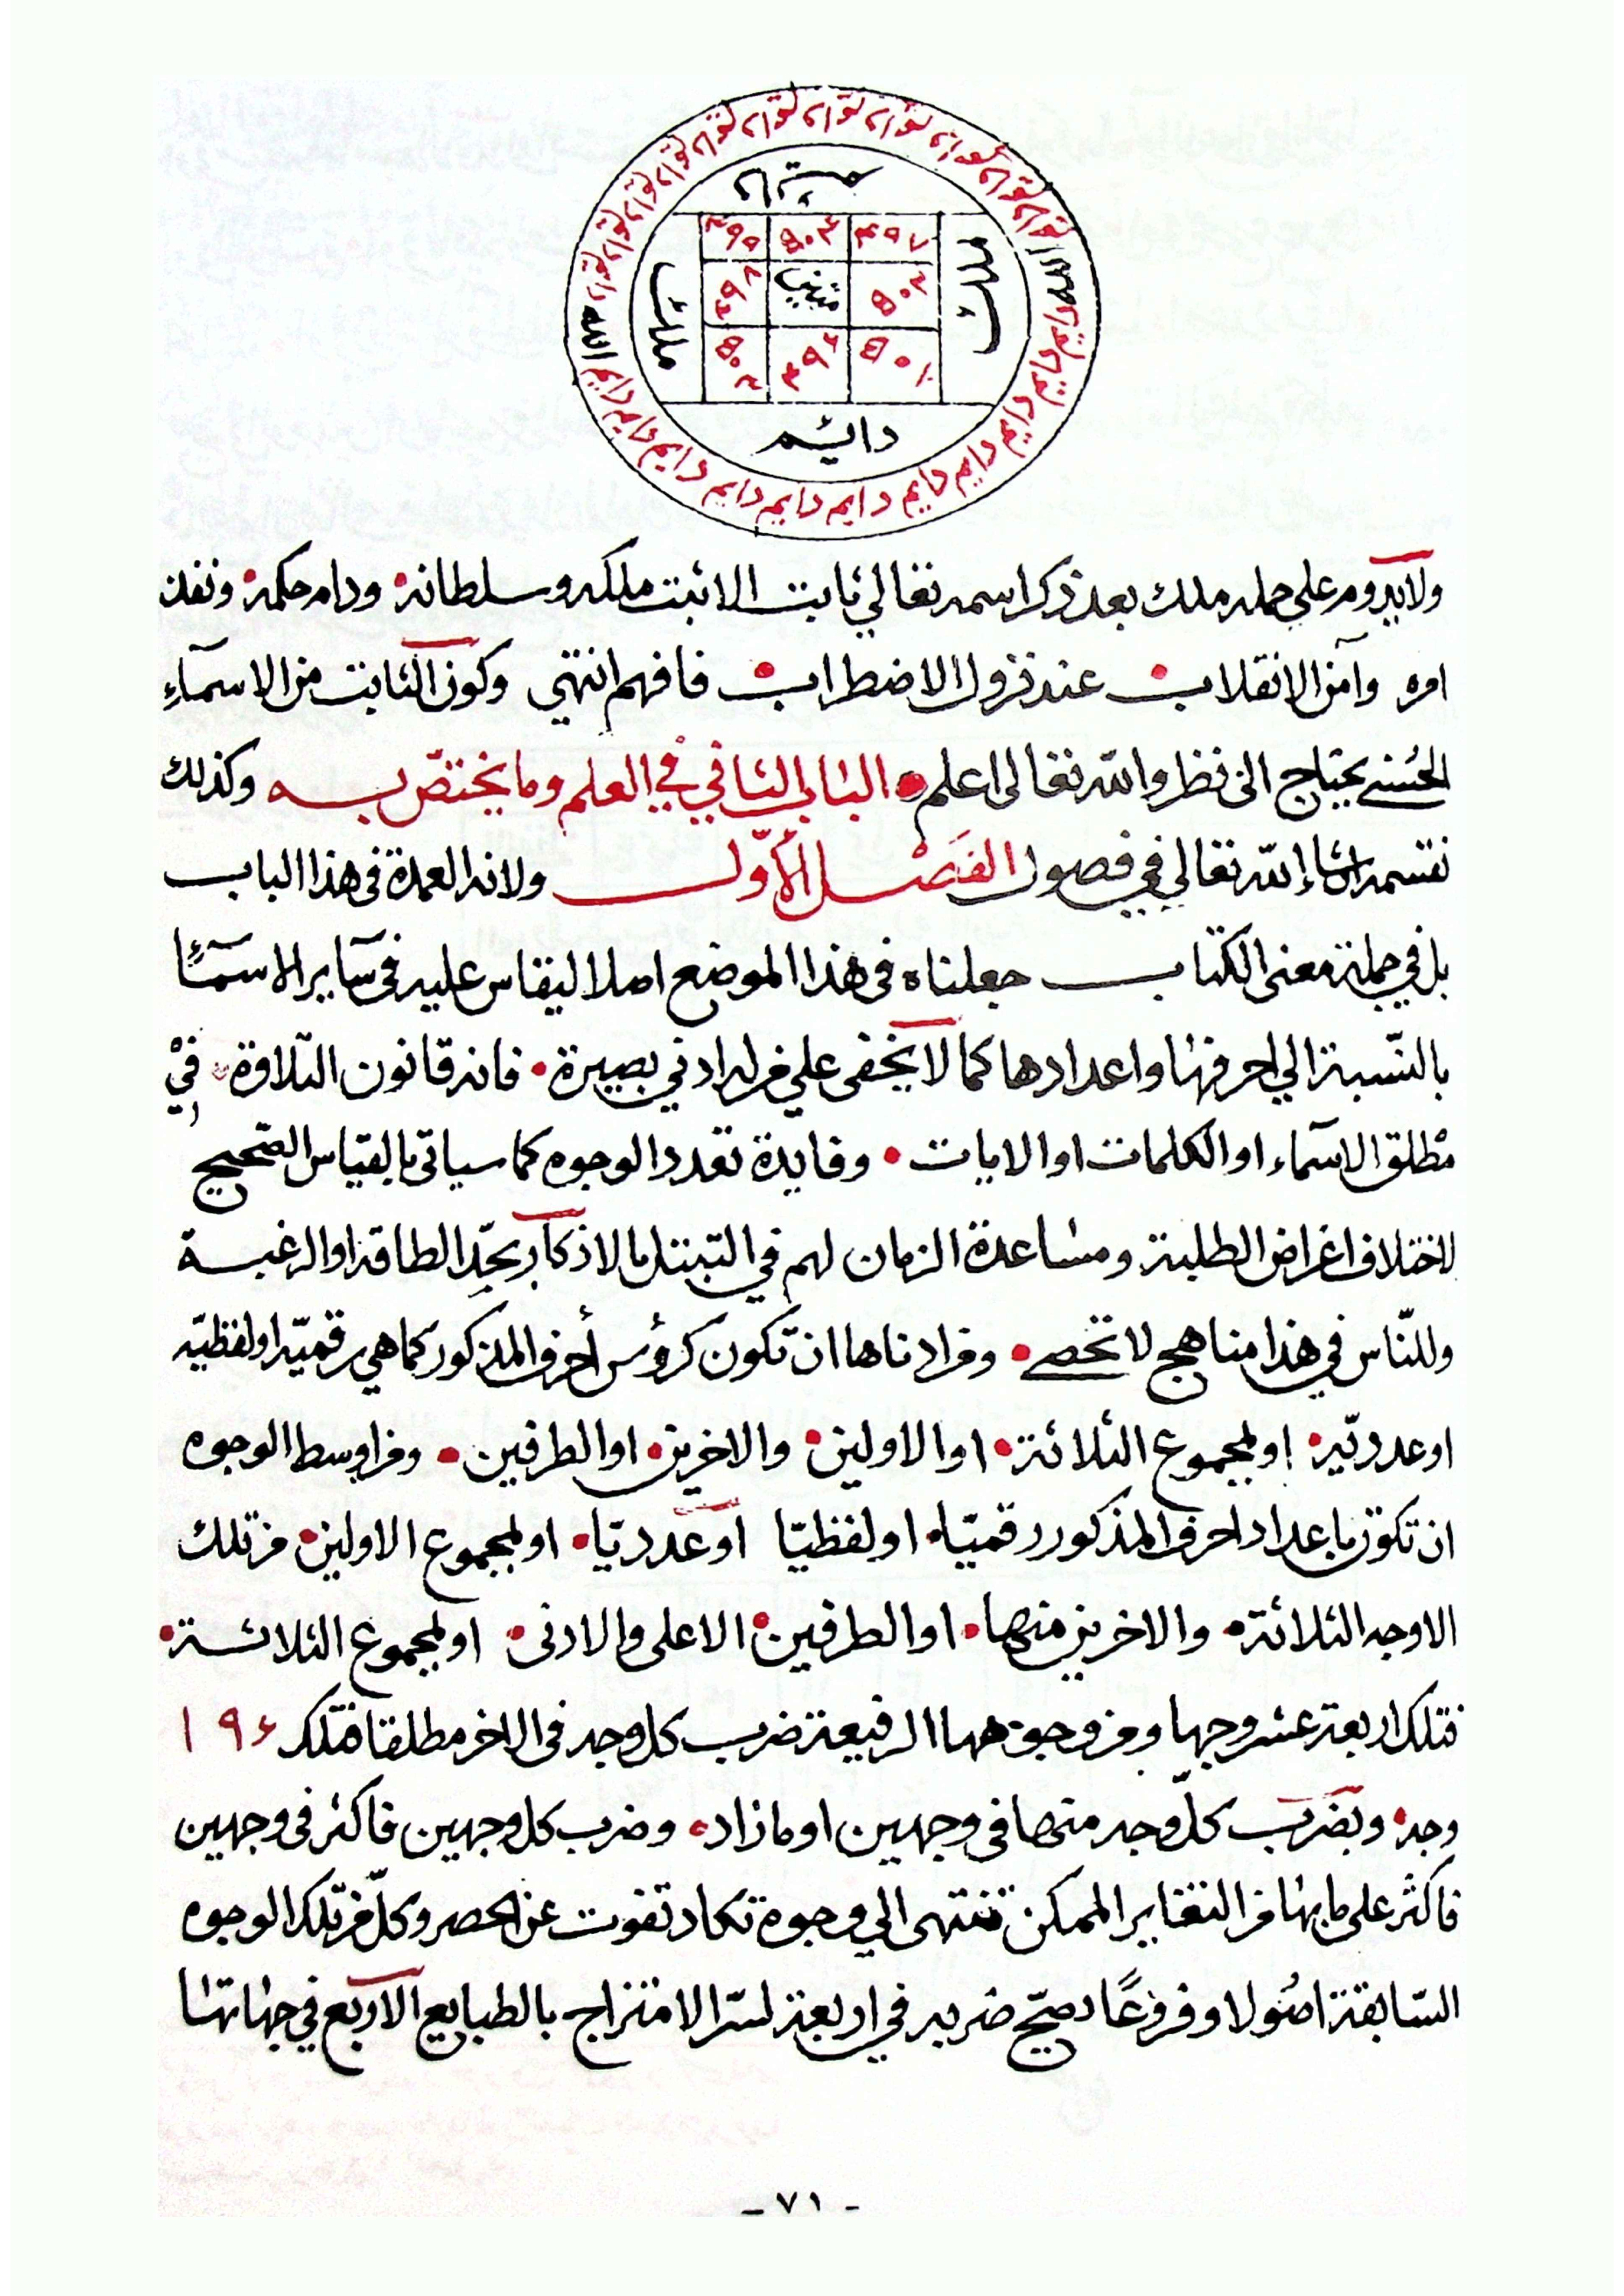 ملك
دايم
ملك
٤٩٧ ٥٠٤ ٤٩٩
ثبت
٤٩٦
الله
ولا يدوم على حمله ملك بعد ذكر اسمه تعالي ثابت الا ثبت ملكه وسلطانه ودام حكمه ونفذ
امره وآمن الانقلاب عند نزول الاضطراب فافهم انتهي وكون الثابت من الاسمآءِ
الحُسنے يحتاج الى نظر والله تعالى اعلم الباب الثاني في العلم وما يختصّ به وكذلك
نقسمه ان شاء الله تعالي في فصول الفَصْل الأَوّل ولانه العمدة فى هذا الباب
بل في جملة معنى الكتاب جعلناه فى هذا الموضع اصلا ليقاس عليه فى سآير الاسمآء
بالنّسبة الي احرفها واعدادها كما لا يخفى علي من له ادني بصيرة فانه قانون التلاوة فيْ
مطلق الاسمآء او الكلمات او الايات وفايدة تعدد الوجوه كما سياتى بالقياس الصّحيح
لاختلاف اغراض الطلبة ومساعدة الزمان لهم في التبتل بالاذكار بحدّ الطاقه او الرغبة
وللنّاس في هذا مناهج لا تحصے ومن ادناها ان تكون كرؤس أحرف المذكور كما هي رقميّه او لفظيّه
او عدديّه او لمجموع الثلاثة او الاولين والاخرين او الطرفين ومن اوسط الوجوه
ان تكون باعداد احرف المذكور رقميّا او لفظيّا او عدديّا او لمجموع الاولين من تلك
الاوجه الثلاثة والاخرين منها او الطرفين الاعلى والادنى او لمجموع الثلاثة
فتلك اربعة عشر وجها ومن وجوهها الرفيعة ضرب كل وجه فى الاخر مطلقا فتلك ١٩٦
وجه وبضرب كلّ وجه منها فى وجهين او مازاد وضرب كل وجهين فاكثر فى وجهين
فاكثر على ما بها من التغاير الممكن تنتهى الي وجوه تكاد تفوت عن الحصر وكلّ من تلك الوجوه
السّابقة اصُولا وفروعًا يصحّ ضربه في اربعة لسرّ الامتزاج بالطبايع الاربع في جهاتها
- ٧١ -